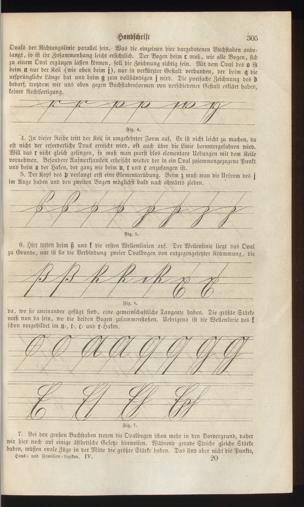 Handschrift 305
Ovals der Richtungslinie parallel sein. Was die einzelnen hier dargebotenen Buchstaben anbe-
langt, so ist ihr Zusammenhang leicht ersichtlich. Der Bogen beim r muß, wie alle Bogen, sich
zu einem Oval ergänzen lassen können, soll die Zeichnung richtig sein. Mit dem Oval des o ist
beim a nur der Keil (wie oben beim j), nur in verkürzter Gestalt verbunden, der beim q die
ursprüngliche Länge hat und beim g zum vollständigen j wird. Die poetische Zeichnung des d
bedarf, trotzdem wir uns oben gegen Buchstabenformen von verschiedener Gestalt erklärt haben,
keiner Rechtfertigung.
Fig. 4.
4. In dieser Reihe tritt der Keil in umgekehrter Form auf. Er ist nicht leicht zu machen, da
oft nicht der erforderliche Druck erreicht wird, oft auch über die Linie herausgefahren wird.
Will das r nicht gleich gelingen, so muß man zuerst eben elementare Uebungen mit dem Keile
vornehmen. Besondere Aufmerksamkeit erheischt wieder der in ein Oval zusammengezogene Punkt
und beim y der Haken, der ganz wie beim v, r und x anzuhängen ist.
5. Der Kopf des p verlangt erst eine Elementarübung. Beim z muß man die Urform des j
im Auge haben und den zweiten Bogen möglichst bald nach abwärts ziehen.
Fig. 5.
6. Hier treten beim p und k die ersten Wellenlinien auf. Der Wellenlinie liegt das Oval
zu Grunde, nur ist sie die Verbindung zweier Ovalbogen von entgegengesetzter Krümmung, die
Fig. 6.
da, wo sie aneinander gefügt sind, eine gemeinschaftliche Tangente haben. Die größte Stärke
muß nun da sein, wo die beiden Bogen zusammenstoßen. Uebrigens ist die Wellenlinie des k
schon vorgebildet im
Fig. 7.
7. Bei den großen Buchstaben treten die Ovalbogen schon mehr in den Vordergrund, daher
wir hier noch auf einige ästhetische Gesetze hinweisen. Während gerade Striche gleiche Stärke
haben, müssen ovale Züge in der Mitte die größte Stärke haben. Das sind aber nicht die Punkte,
Haus- und Familien-Lexikon. IV. 20